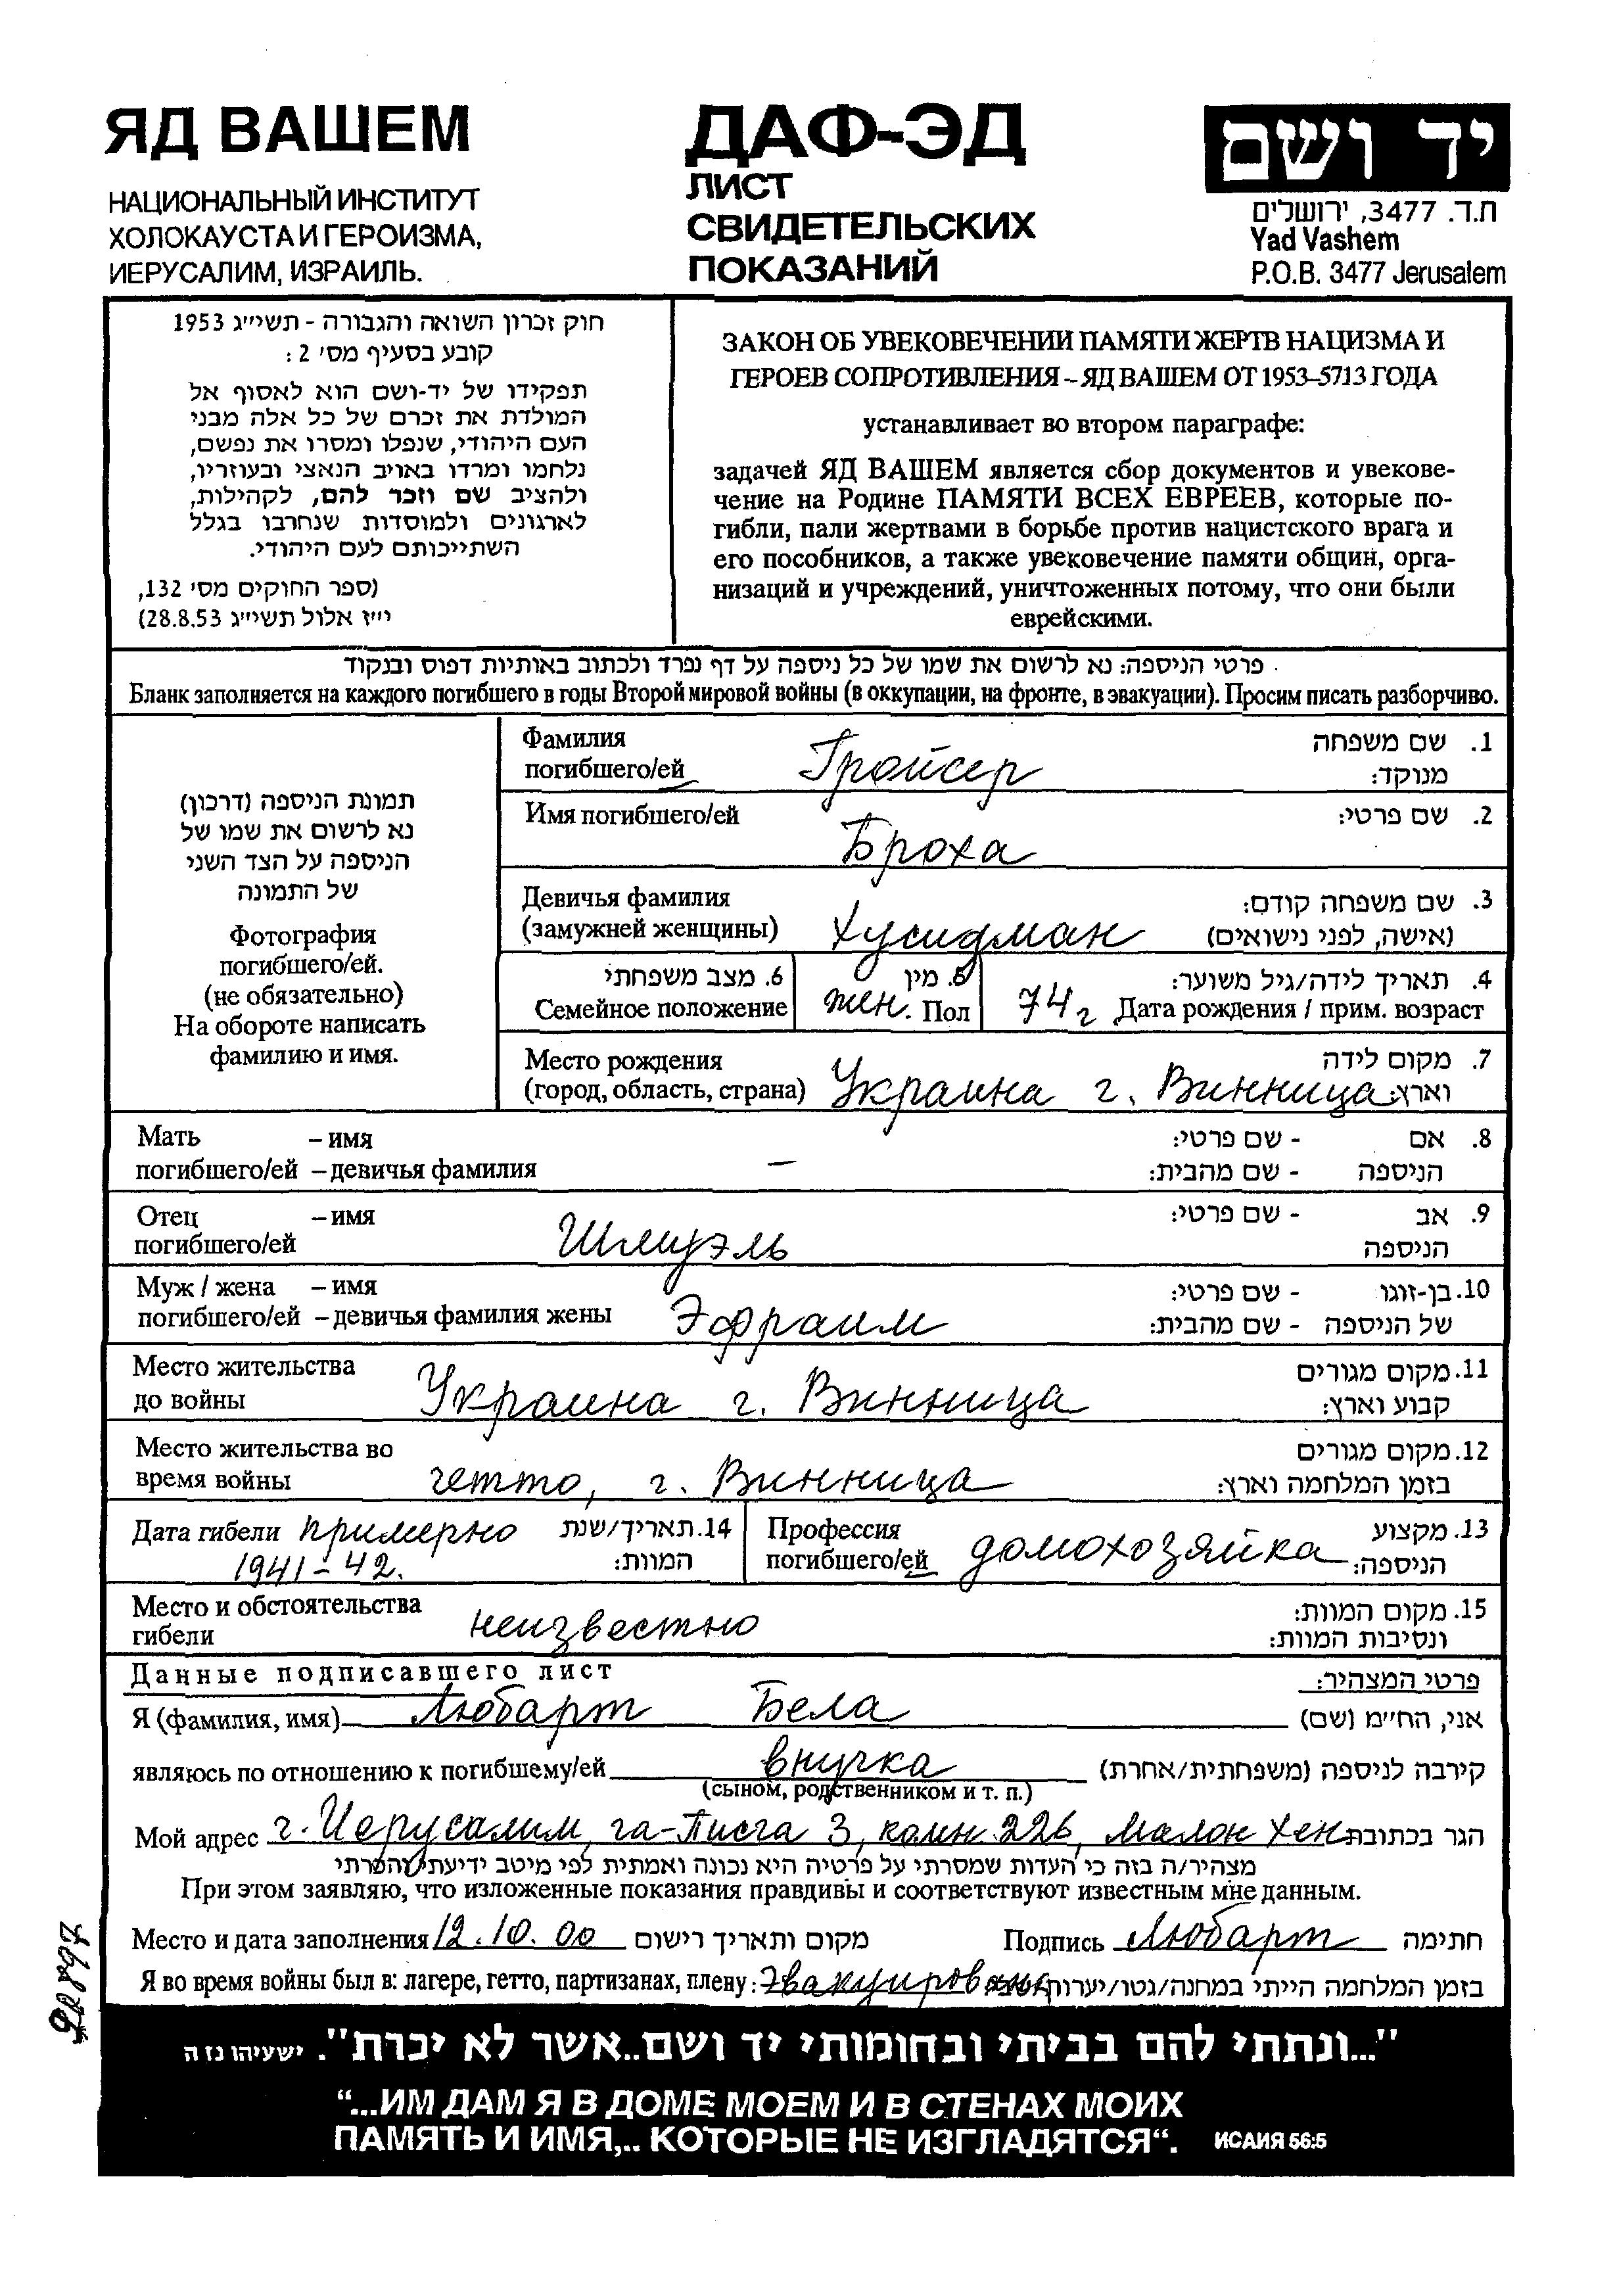 ЯД ВАШЕМ
НАЦИОНАЛЬНЫЙ ИНСТИТУТ
ХОЛОКАУСТА И ГЕРОИЗМА,
ИЕРУСАЛИМ, ИЗРАИЛЬ.
ДАФ-ЭД
ЛИСТ
СВИДЕТЕЛЬСКИХ
ПОКАЗАНИЙ
יד ושם
ת.ד. 3477, ירושלים
Yad Vashem
P.O.B. 3477 Jerusalem
חוק זכרון השואה והגבורה - תשי״ג 1953
קובע בסעיף מס׳ 2 :
תפקידו של יד-ושם הוא לאסוף אל
המולדת את זכרם של כל אלה מבני
העם היהודי, שנפלו ומסרו את נפשם,
נלחמו ומרדו באויב הנאצי ובעוזריו,
ולהציב שם וזכר להם, לקהילות,
לארגונים ולמוסדות שנחרבו בגלל
השתייכותם לעם היהודי.
(ספר החוקים מס׳ 132,
י״ז אלול תשי״ג 28.8.53)
ЗАКОН ОБ УВЕКОВЕЧЕНИИ ПАМЯТИ ЖЕРТВ НАЦИЗМА И
ГЕРОЕВ СОПРОТИВЛЕНИЯ – ЯД ВАШЕМ ОТ 1953-5713 ГОДА
устанавливает во втором параграфе:
задачей ЯД ВАШЕМ является сбор документов и увекове-
чение на Родине ПАМЯТИ ВСЕХ ЕВРЕЕВ, которые по-
гибли, пали жертвами в борьбе против нацистского врага и
его пособников, а также увековечение памяти общин, орга-
низаций и учреждений, уничтоженных потому, что они были
еврейскими.
פרטי הניספה: נא לרשום את שמו של כל ניספה על דף נפרד ולכתוב באותיות דפוס ובנקוד
Бланк заполняется на каждого погибшего в годы Второй мировой войны (в оккупации, на фронте, в эвакуации). Просим писать разборчиво.
תמונת הניספה (דרכון)
נא לרשום את שמו של
הניספה על הצד השני
של התמונה
Фотография
погибшего/ей.
(не обязательно)
На обороте написать
фамилию и имя.
Фамилия 1. שם משפחה
погибшего/ей Гройсер מנוקד:
Имя погибшего/ей 2. שם פרטי:
Броха
Девичья фамилия 3. שם משפחה קודם:
(замужней женщины) Хусидман (אישה, לפני נישואים)
6. מצב משפחתי 5. מין 4. תאריך לידה/גיל משוער:
Семейное положение жен. Пол 74 г Дата рождения / прим. возраст
Место рождения 7. מקום לידה
(город, область, страна) Украина г. Винница וארץ:
Мать – имя 8. אם - שם פרטי:
погибшего/ей – девичья фамилия – הניספה - שם מהבית:
Отец – имя 9. אב - שם פרטי:
погибшего/ей Шмуэль הניספה
Муж / жена – имя 10. בן-זוגו - שם פרטי:
погибшего/ей – девичья фамилия жены Эфраим של הניספה - שם מהבית:
Место жительства 11. מקום מגורים
до войны Украина г. Винница קבוע וארץ:
Место жительства во 12. מקום מגורים
время войны гетто, г. Винница בזמן המלחמה וארץ:
Дата гибели примерно 14. תאריך/שנת Профессия 13. מקצוע
1941-42. המוות: погибшего/ей домохозяйка הניספה:
Место и обстоятельства 15. מקום המוות:
гибели неизвестно ונסיבות המוות:
Данные подписавшего лист פרטי המצהיר:
Я (фамилия, имя) Любарт Бела אני, הח״מ (שם)
являюсь по отношению к погибшему/ей внучка קירבה לניספה (משפחתית/אחרת)
(сыном, родственником и т. п.)
Мой адрес г. Иерусалим, га-Писга 3, комн. 226, Малон Хен הגר בכתובת
מצהיר/ה בזה כי העדות שמסרתי על פרטיה היא נכונה ואמתית לפי מיטב ידיעתי והכרתי
При этом заявляю, что изложенные показания правдивы и соответствуют известным мне данным.
Место и дата заполнения 12.10.00 מקום ותאריך רישום Подпись Любарт חתימה
Я во время войны был в: лагере, гетто, партизанах, плену: Эвакуирован בזמן המלחמה הייתי במחנה/גטו/יערות
"...ונתתי להם בביתי ובחומותי יד ושם..אשר לא יכרת". ישעיהו נז ה
“...ИМ ДАМ Я В ДОМЕ МОЕМ И В СТЕНАХ МОИХ
ПАМЯТЬ И ИМЯ,.. КОТОРЫЕ НЕ ИЗГЛАДЯТСЯ“. ИСАИЯ 56:5